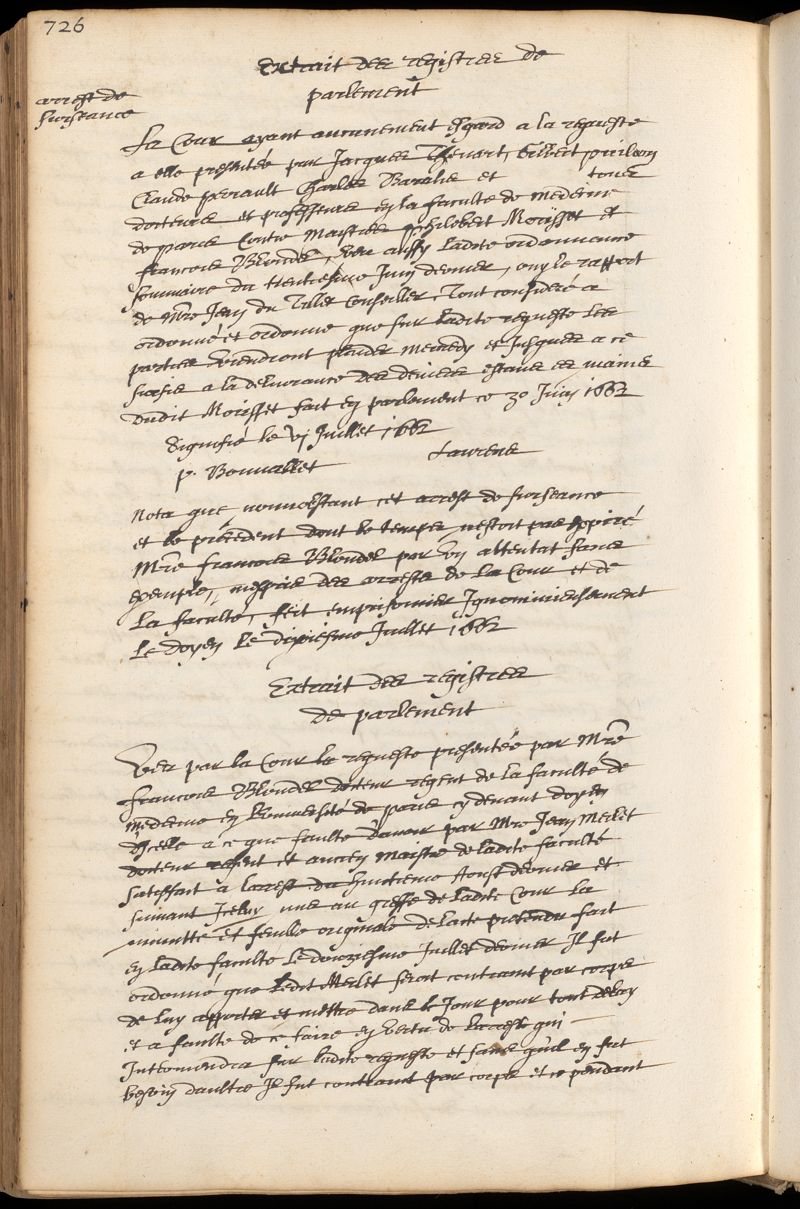 726
Extrait des registres de
parlement
arrest de
surseance
La Cour ayant aucunement esgard a la requeste
a elle presentée par Jacques Thevart, Gilbert puilon
Claude perrault Charles Baralis et tous
docteurs et professeurs en la faculte de medecine
de paris Contre Maistres philebert Morisset et
francois Blondel, Veu aussy ladite ordonnance
sommaire du trentiesme Juin dernier, ouy le rapport
de Mre Jean du Tillet Conseiller, Tout consideré a
ordonné et ordonne que sur ladite requeste les
parties viendront plaider mercredy et Jusques a ce
sursis a la delivrance des deniers estans es mains
dudit Morisset fait en parlement ce 30 Juin 1662
Signifié le vj Juillet 1662
p. Bonnallet Laurens
Nota que nonnobstant cet arrest de surseance
et le précedent dont le temps nestoit pas expiré
Mre francois Blondel par Un attentat sans
exemple, mespris des arrests de la Cour et de
La faculté, feit emprisonner Ignominieusement
Le doyen Le dixiesme Juillet 1662
Extrait des registres
de parlement
Veu par la Cour la requeste presentée par Mre
francois Blondel docteur regent de la faculté de
Medecine en Lunnversité de paris cy devant doyen
dIcelle a ce que faulte davoir par Mre Jean Merlet
docteur regent et ancien Maistre de ladite faculté
satisfait a larrest du huictieme Aoust dernier et
suivant Iceluy mis au greffe de ladite Cour la
minutte et feuille originale de lacte pretendu fait
en ladite faculté Le douziesme Juillet dernier Il fut
ordonné que Ledit Merlet seroit contraint par corps
de luy apporter et mettre dans le Jour pour tout delay
et a faulte de ce faire en vertu de larrest qui
Interviendra sur ladite requeste et sans quil en fut
besoin daultre Il fut contraint par corps et ce pendant